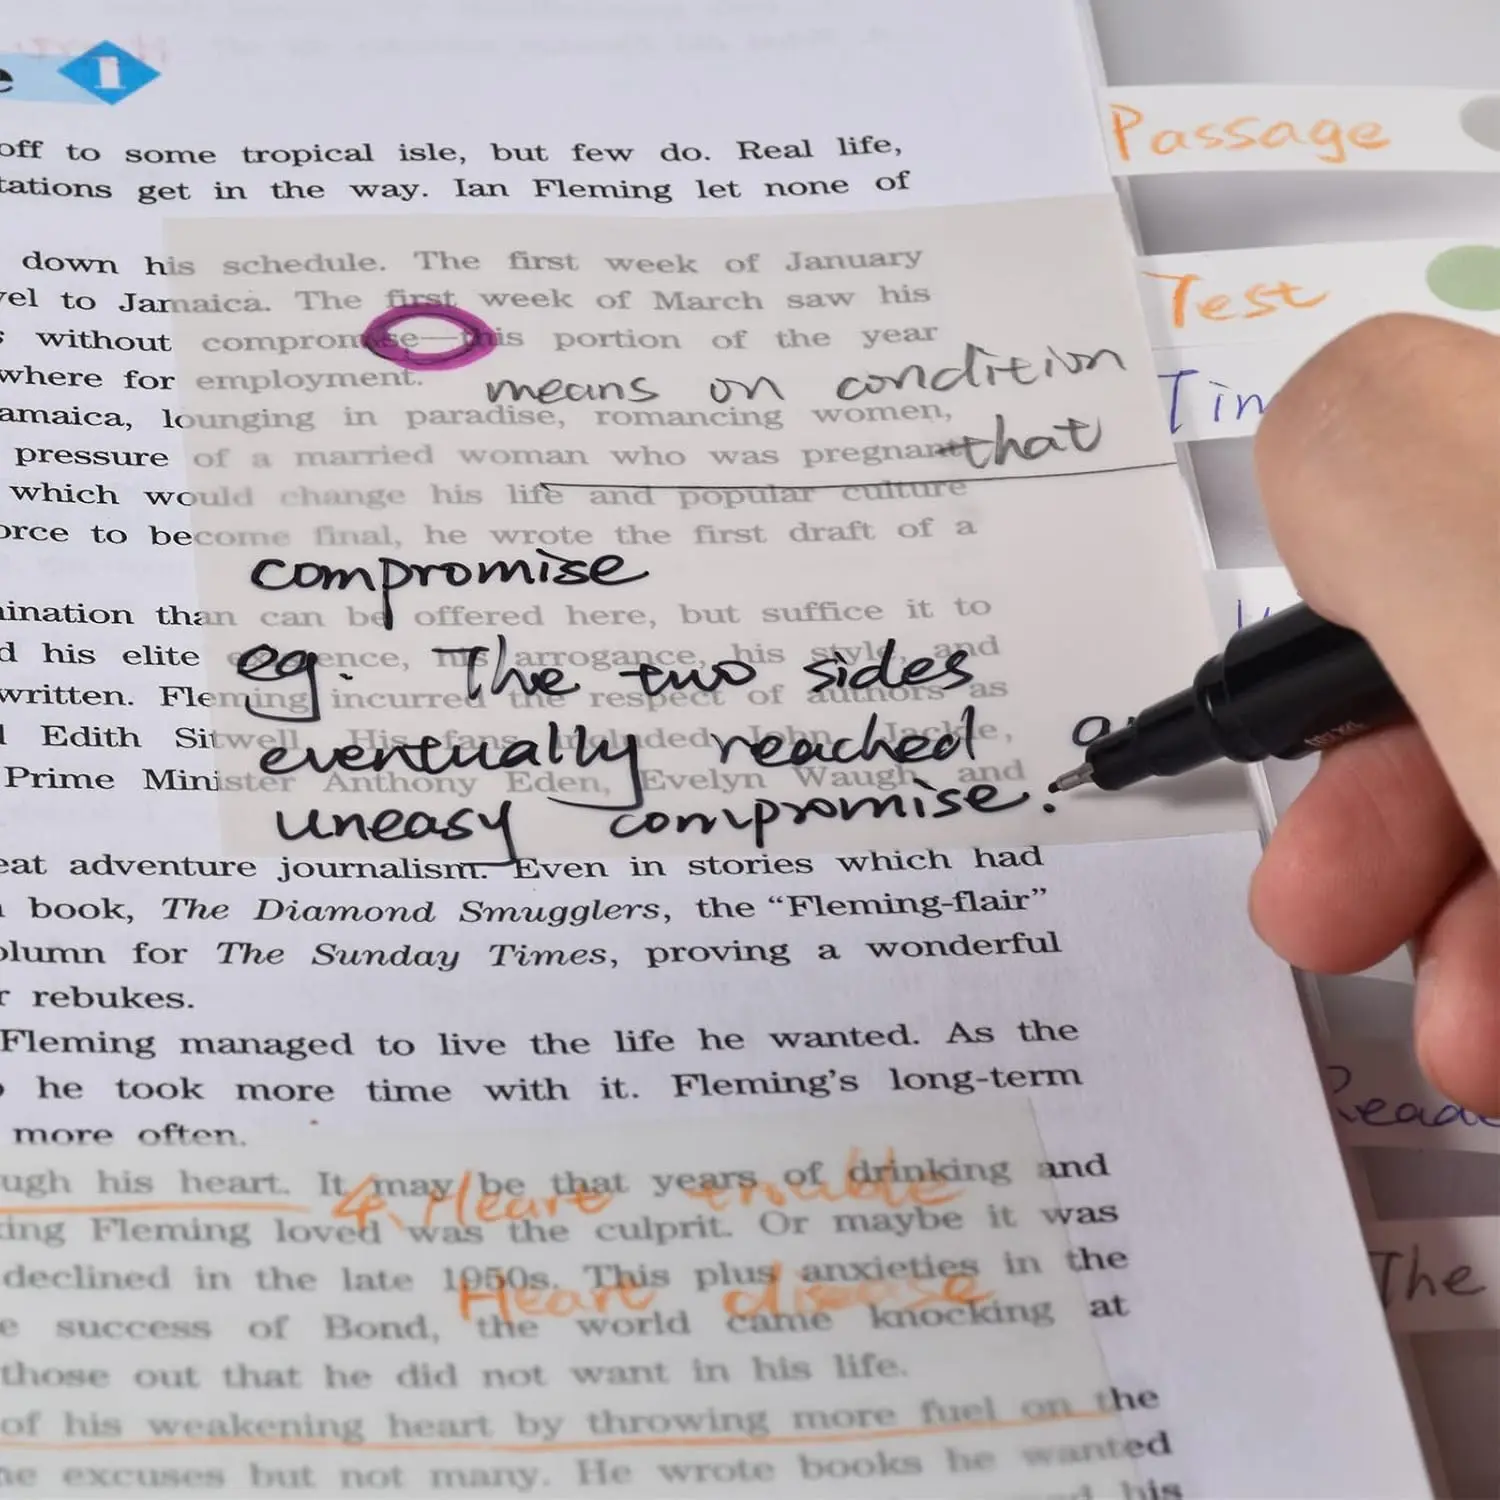 1
off to some tropical isle, but few do. Real life,
tations get in the way. Ian Fleming let none of
down his schedule. The first week of January
vel to Jamaica. The first week of March saw his
without compromise—this portion of the year
where for employment.
means on condition
amaica, lounging in paradise, romancing women,
that
pressure of a married woman who was pregnant
which would change his life and popular culture
orce to become final, he wrote the first draft of a
compromise
ination than can be offered here, but suffice it to
d his elite existence, his arrogance, his style, and
eg. The two sides
written. Fleming incurred the respect of authors as
d Edith Sitwell. His fans included John Jackle,
eventually reached
Prime Minister Anthony Eden, Evelyn Waugh, and
uneasy compromise.
eat adventure journalism. Even in stories which had
book, The Diamond Smugglers, the “Fleming-flair”
olumn for The Sunday Times, proving a wonderful
r rebukes.
Fleming managed to live the life he wanted. As the
he took more time with it. Fleming’s long-term
more often.
ugh his heart. It may be that years of drinking and
4. Heart trouble
ing Fleming loved was the culprit. Or maybe it was
declined in the late 1950s. This plus anxieties in the
Heart disease
e success of Bond, the world came knocking at
those out that he did not want in his life.
of his weakening heart by throwing more fuel on the
he excuses but not many. He wrote books he wanted
his
Passage
Test
Tim
Read
The